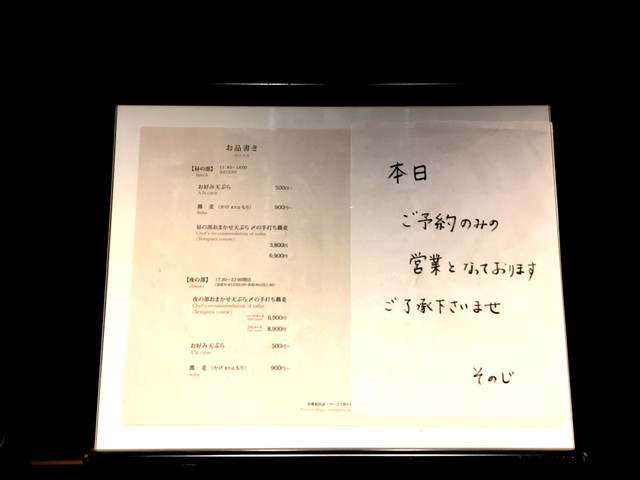 お品書き
【昼の部】 11:30〜14:00
lunch
お好み天ぷら 500円〜
A la carte
蕎 麦 (かけ または もり) 900円〜
Soba
昼の部おまかせ天ぷら〆の手打ち蕎麦
Chef's recommendation of today
(Tempura course)
3,800円
6,900円
【夜の部】
dinner
夜の部おまかせ天ぷら〆の手打ち蕎麦
Chef's recommendation of today
(Tempura course)
6,900円
8,900円
お好み天ぷら 500円〜
A la carte
蕎 麦 (かけ または もり) 900円〜
Soba
本日
ご予約のみの
営業となっております
ご了承下さいませ
そのじ